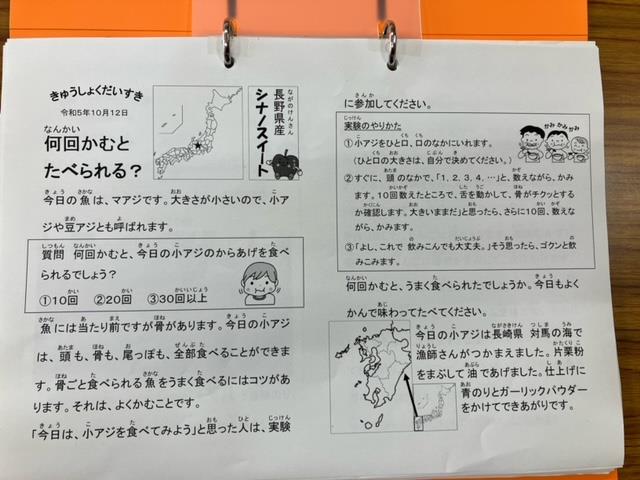 きゅうしょくだいすき
令和5年10月12日
何回かむと
たべられる?
長野県産
シナノスイート
今日の魚は、マアジです。大きさが小さいので、小ア
ジや豆アジとも呼ばれます。
質問 何回かむと、今日の小アジのからあげを食べ
られるでしょう?
①10回 ②20回 ③30回以上
魚には当たり前ですが骨があります。今日の小アジ
は、頭も、骨も、尾っぽも、全部食べることができま
す。骨ごと食べられる魚をうまく食べるにはコツがあ
ります。それは、よくかむことです。
「今日は、小アジを食べてみよう」と思った人は、実験
に参加してください。
実験のやりかた
かみ かみ かみ
①小アジをひと口、口のなかにいれます。
(ひと口の大きさは、自分で決めてください。)
②すぐに、頭のなかで、「1、2、3、4、…」と、数えながら、かみ
ます。10回数えたところで、舌を動かして、骨がチクッとする
か確認します。大きいままだ」と思ったら、さらに10回、数え
ながら、かみます。
③「よし、これで飲みこんでも大丈夫。」そう思ったら、ゴクンと飲
みこみます。
何回かむと、うまく食べられたでしょうか。今日もよく
かんで味わってたべてください。
今日の小アジは長崎県 対馬の海で
漁師さんがつかまえました。片栗粉
をまぶして油であげました。仕上げに
青のりとガーリックパウダー
をかけてできあがりです。